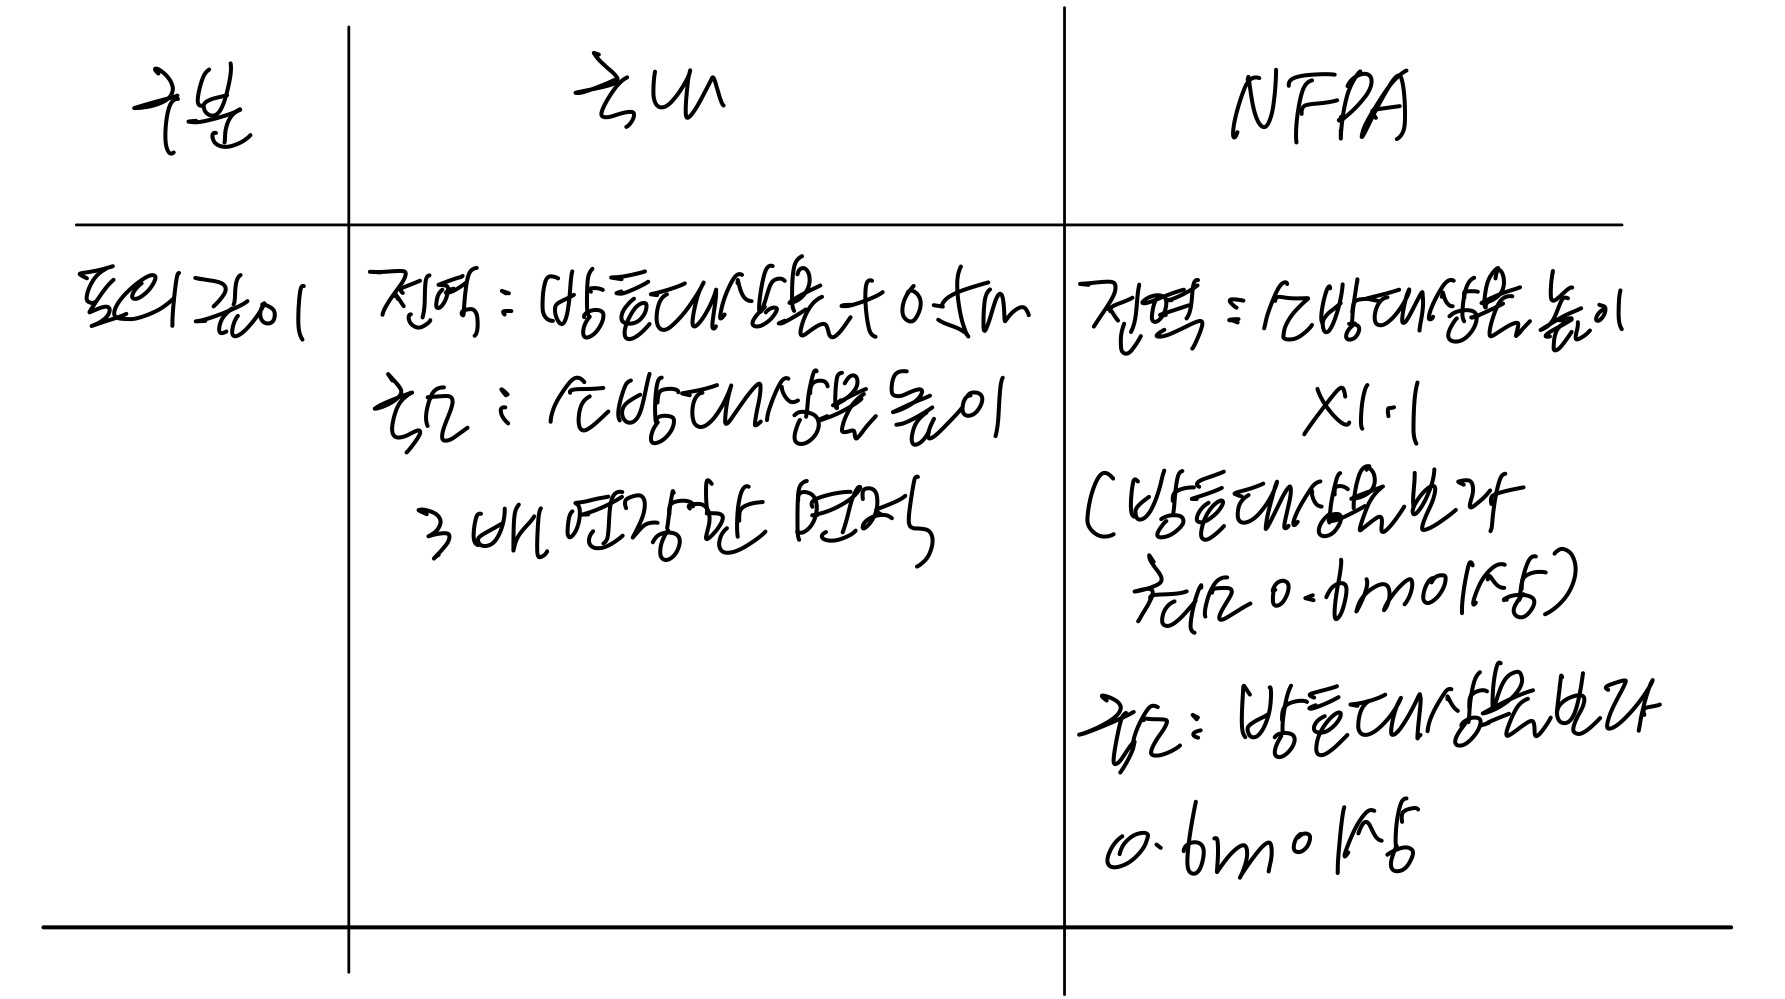 구분
국내
NFPA
포의 깊이
전역 : 방호대상물 + 0.5m
국소 : 소방대상물 높이
3배 연장한 면적
전역 : 소방대상물 높이
X1.1
(방호대상물보다
최소 0.6m이상)
국소 : 방호대상물보다
0.6m이상